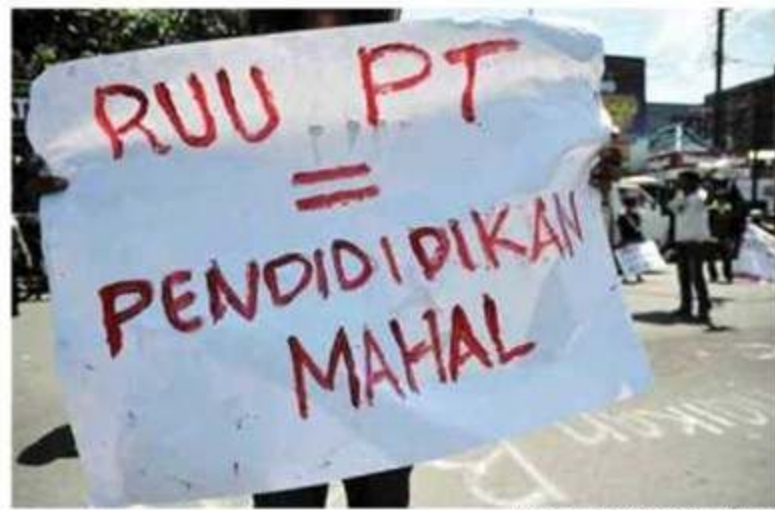 RUU PT
=
PENDIDIDIKAN
MAHAL